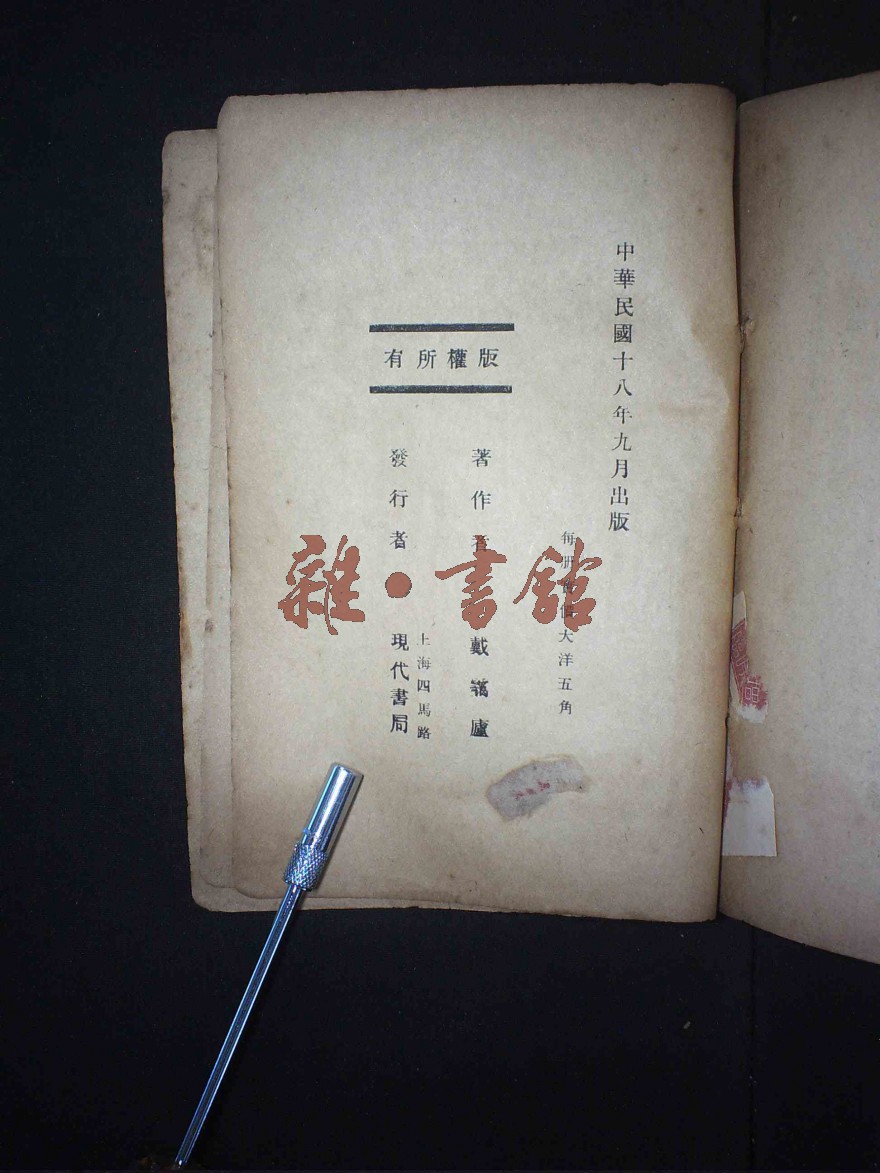 中華民國十八年九月出版
每册實價大洋五角
版權所有
著作者 戴藹廬
發行者 上海四馬路 現代書局
雜·書館